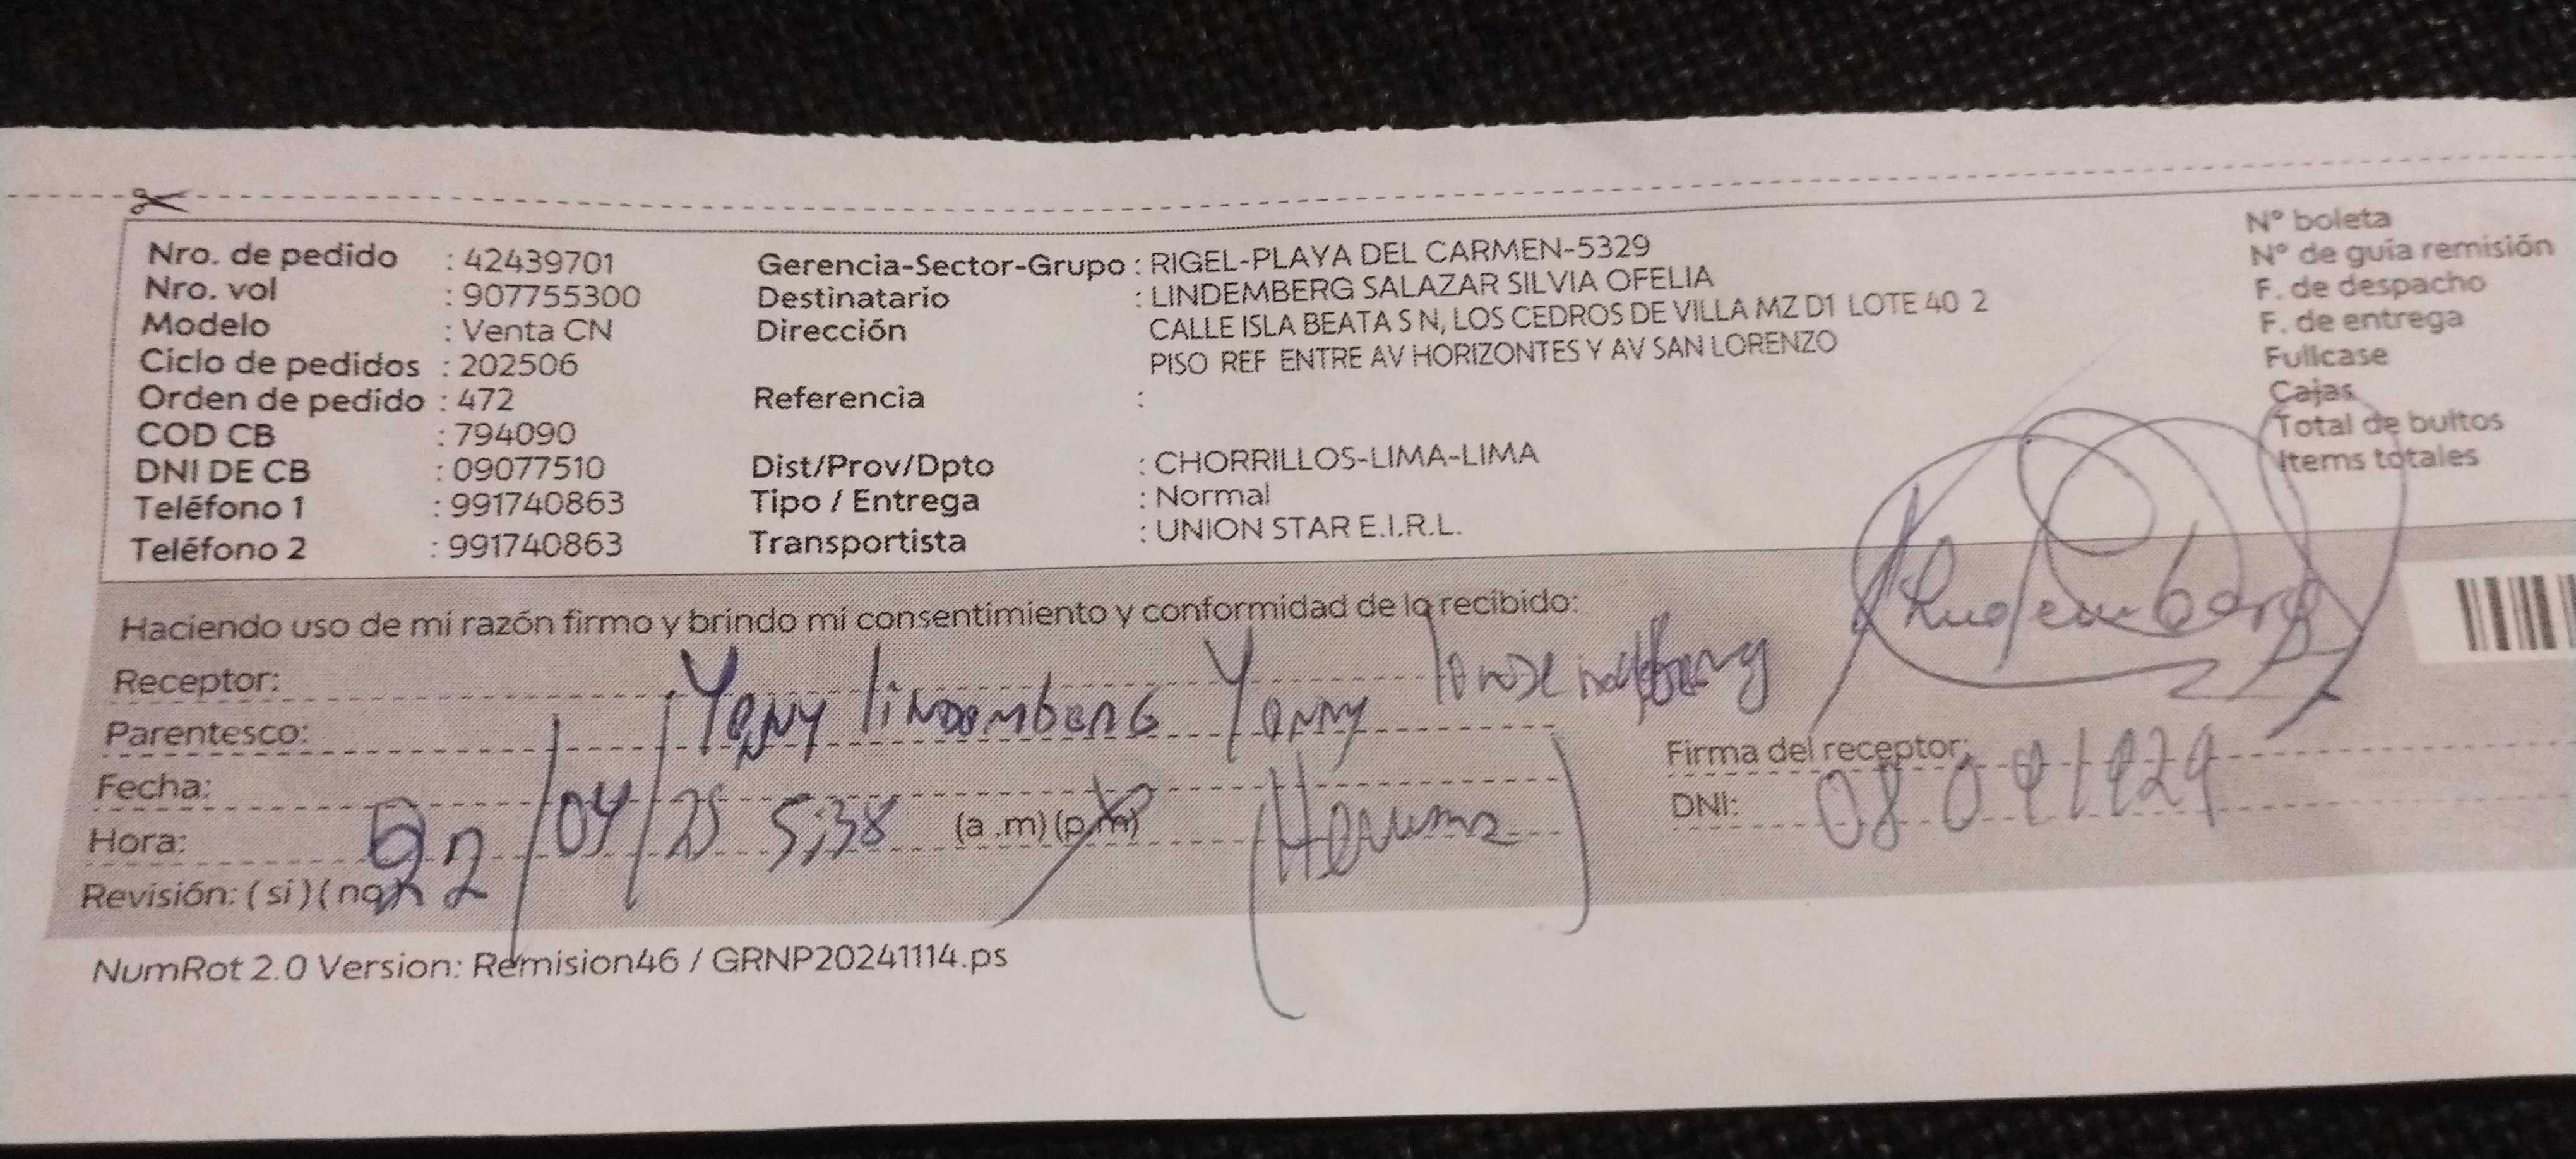 Nro. de pedido : 42439701
Nro. vol : 907755300
Modelo : Venta CN
Ciclo de pedidos : 202506
Orden de pedido : 472
COD CB : 794090
DNI DE CB : 09077510
Teléfono 1 : 991740863
Teléfono 2 : 991740863
Gerencia-Sector-Grupo : RIGEL-PLAYA DEL CARMEN-5329
Destinatario : LINDEMBERG SALAZAR SILVIA OFELIA
Dirección CALLE ISLA BEATA S N, LOS CEDROS DE VILLA MZ D1 LOTE 40 2
PISO REF ENTRE AV HORIZONTES Y AV SAN LORENZO
Referencia :
Dist/Prov/Dpto : CHORRILLOS-LIMA-LIMA
Tipo / Entrega : Normal
Transportista : UNION STAR E.I.R.L.
Nº boleta
Nº de guía remisión
F. de despacho
F. de entrega
Fullcase
Cajas
Total de bultos
Items totales
Haciendo uso de mi razón firmo y brindo mi consentimiento y conformidad de lo recibido:
Receptor:
Parentesco: lindemberg
Fecha:
Hora: 22/04/25 5:38 (a .m) (p.m)
Revisión: (si) (no)
Firma del receptor:
DNI:
NumRot 2.0 Version: Remision46 / GRNP20241114.ps